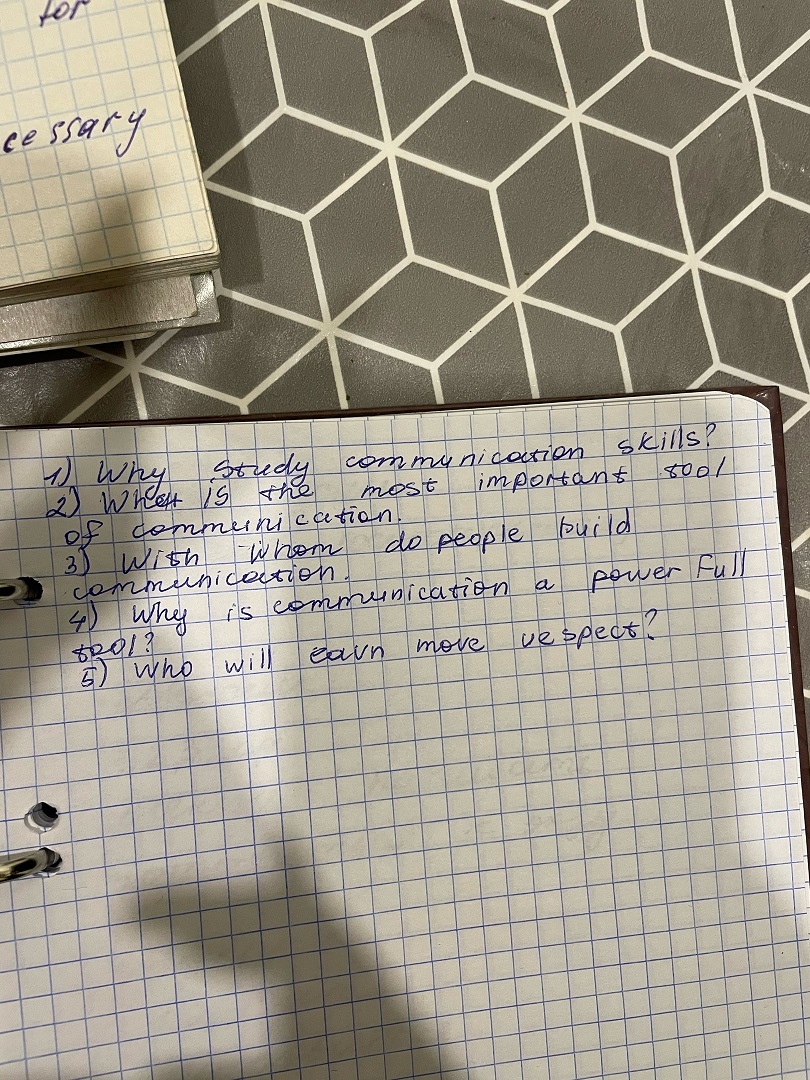 for
cessary
1) Why study communication skills?
2) What is the most important tool
of communication.
3) With whom do people build
communication.
4) Why is communication a power full
tool?
5) Who will earn more respect?